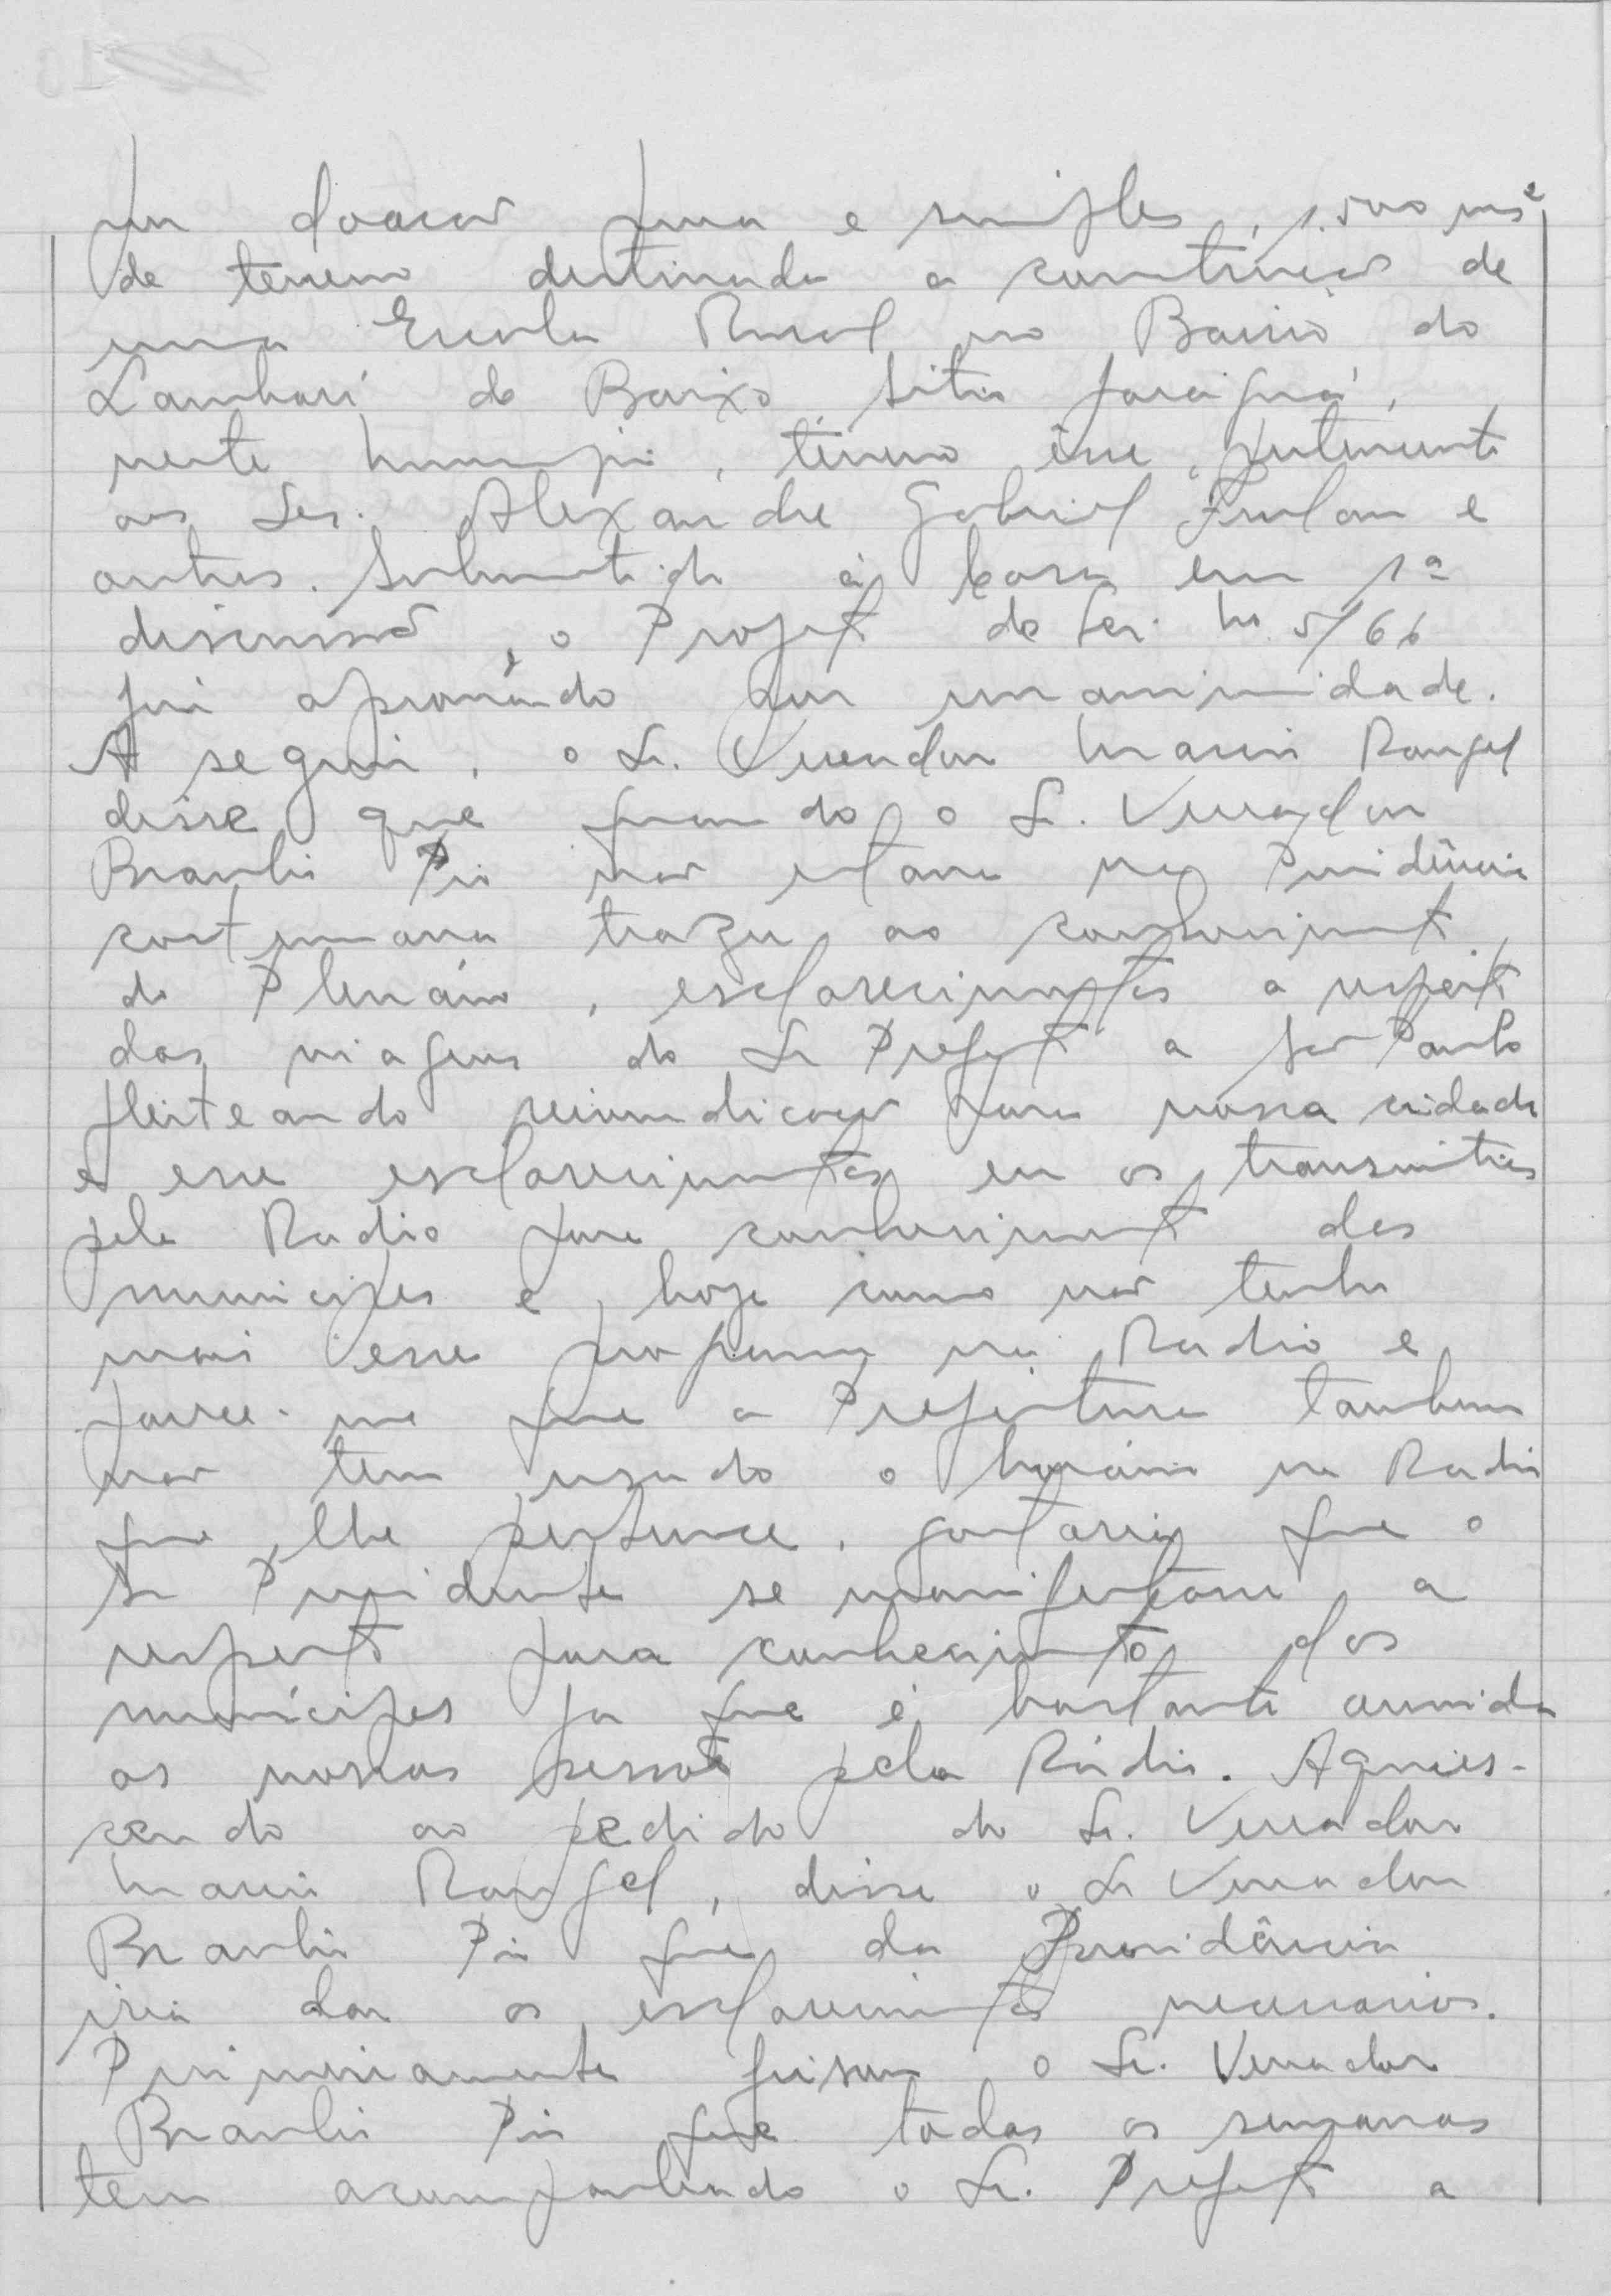 por doação pura e simples, 1.500 ms²
de terreno destinada a construção de
uma Escola Rural no Bairro do
Lambarí de Baixo, Sitio
neste municipio, terreno êsse pertencente
aos Srs. Alexandre Gabriel e
outros. Submetido à Casa em 1ª
discussão, o Projeto de Lei no 5/66
foi aprovado por unanimidade.
A seguir, o Sr. Vereador Mario Rangel
disse que quando o Sr. Vereador
Braulio Pio não estava na Presidência
costumava trazer ao conhecimento
do Plenário, esclarecimentos a respeito
das viagens do Sr Prefeito a São Paulo
pleiteando reivindicações para nossa cidade
e esse esclarecimentos eu os transmitia
pela Radio para conhecimento dos
municipes e hoje como não tenho
mais esse programa na Radio e
parece-me que a Prefeitura tambem
não tem usado o horário na Radio
que lhe pertence, gostaria que o
Sr Presidente se manifestasse a
respeito para conhecimento dos
munícipes ja que é bastante ouvida
as nossas sessoes pela Rádio. Aquies-
cendo ao pedido do Sr. Vereador
Mario Rangel, disse o Sr Vereador
Braulio Pio que da Presidência
iria dar os esclarecimentos necessarios.
Primeiramente frisou o Sr. Vereador
Braulio Pio que todas as semanas
tem acompanhado o Sr. Prefeito a